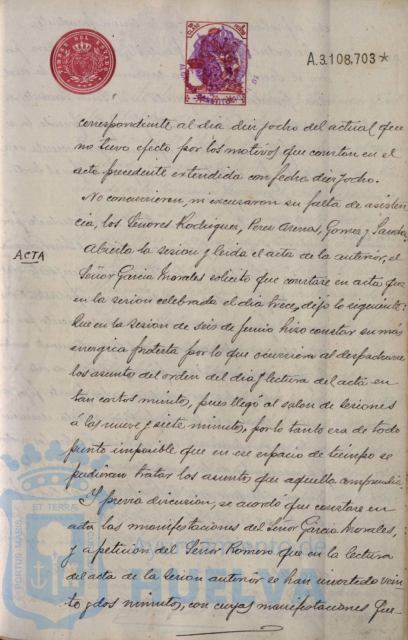 A.3.108,703*
correspondiente al dia diez y ocho del actual, que
no tuvo efecto por los motivos que constan en el
acta precedente extendida con fecha diez y ocho.
No concurrieron, ni excusaron su falta de asisten-
cia, los Señores Rodriguez, Perez Arenas, Gomez y
Abierta la sesion y leida el acta de la anterior, el
ACTA
Señor Garcia Morales solicitó que constare en acta que
en la sesion celebrada el dia trece, dijo lo siguiente:
Que en la sesion de seis de Junio hizo constar su mas
energica protesta por lo que ocurriera al despacharse
los asuntos del orden del dia y lectura del acta en
tan cortos minutos, pues llegó al salon de sesiones
á las nueve y siete minutos, por lo tanto era de todo
punto imposible que en ese espacio de tiempo se
pudieran tratar los asuntos que aquella comprendia.
Y previa discusion, se acordó que constare en
acta las manifestaciones del Señor Garcia Morales,
y a peticion del Señor Romero que en la lectura
del acta de la sesion anterior se han invertido vein-
te y dos minutos, con cuyas manifestaciones que-
PORTUS MARIS
ET TERRAE
Ayuntamiento de
HUELVA